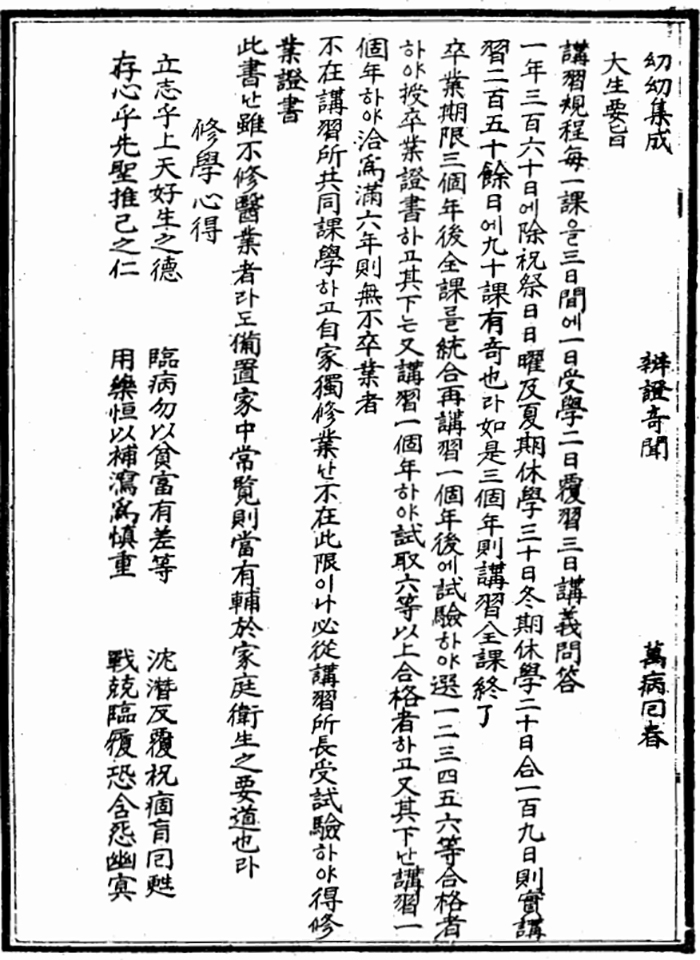 幼幼集成 辨證奇聞 萬病回春
大生要旨
講習規程每一課을三日間에一日受學二日覆習三日講義問答
一年三百六十日에除祝祭日日曜及夏期休學三十日冬期休學二十日合一百九日則實講
習二百五十餘日에九十課有奇也라如是三個年則講習全課終了
卒業期限三個年後全課를統合再講習一個年後에試驗하야選一二三四五六等合格者
하야授卒業證書하고其下는又講習一個年하야試取六等以上合格者하고又其下난講習一
個年하야洽爲滿六年則無不卒業者
不在講習所共同課學하고自家獨修業난不在此限이나必從講習所長受試驗하야得修
業證書
此書난雖不修醫業者라도備置家中常覽則當有輔於家庭衛生之要道也라
修學心得
立志乎上天好生之德 臨病勿以貧富有差等 沈潛反覆祝痼肓回甦
存心乎先聖推己之仁 用藥恒以補瀉爲愼重 戰兢臨履恐含怨幽冥